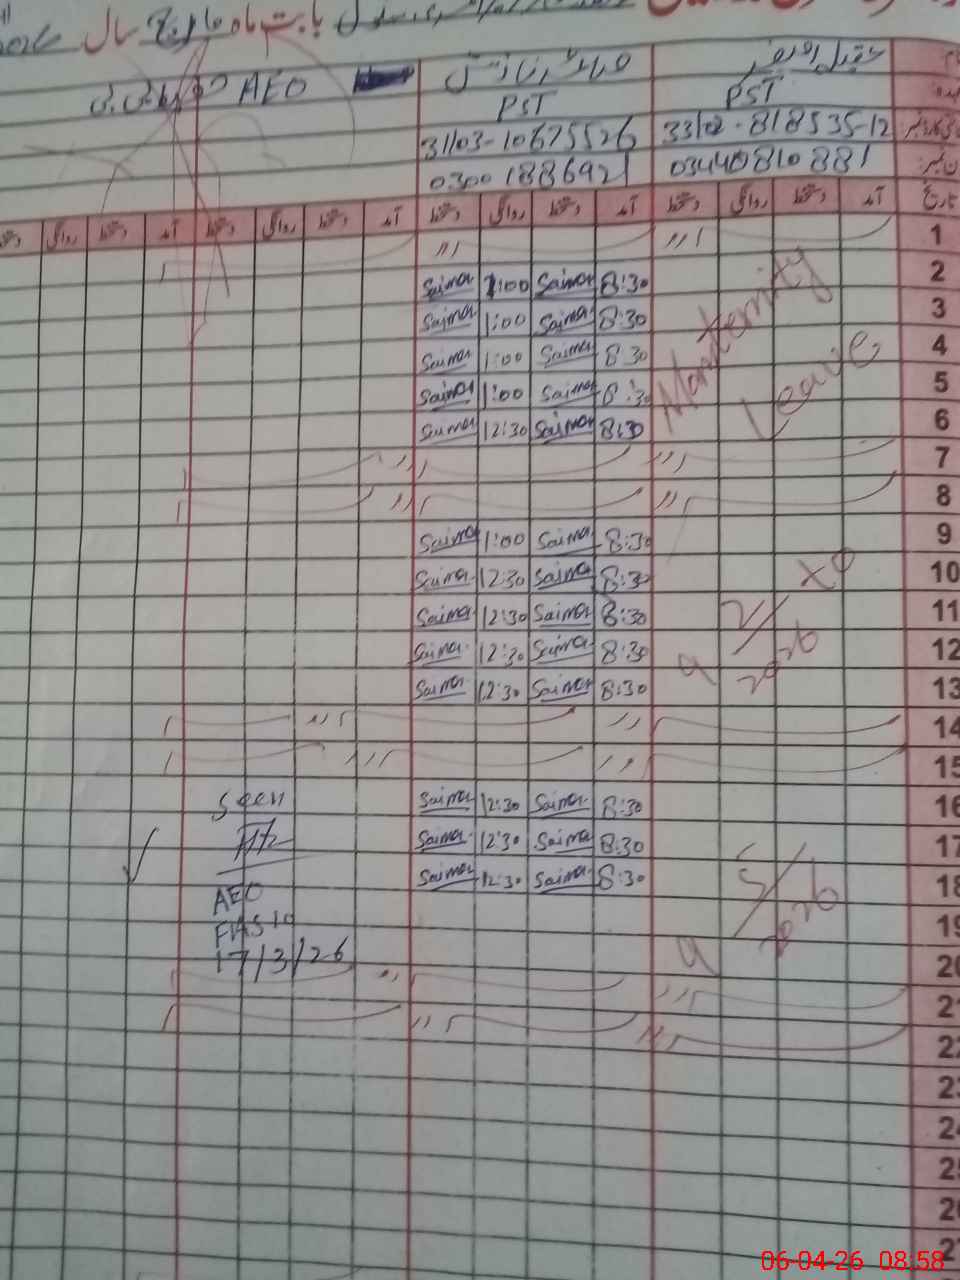 بابت ماہ مارچ سال
AEO
PST
PST
31103-10675526
33102-818535-12
0300 1886921
03440810881
تاریخ
آمد دستخط روانگی دستخط آمد دستخط روانگی دستخط آمد دستخط روانگی دستخط
1
2 8:30 Saima 1:00 Saima
3 8:30 Saima 1:00 Saima
4 8:30 Saima 1:00 Saima
5 8:30 Saima 1:00 Saima
6 8:30 Saima 12:30 Saima
Materrity
Leave
7
8
9 8:30 Saima 1:00 Saima
10 8:30 Saima 12:30 Saima
11 8:30 Saima 12:30 Saima
12 8:30 Saima 12:30 Saima
13 8:30 Saima 12:30 Saima
9 2/2026 to
14
15
16 8:30 Saima 12:30 Saima
17 8:30 Saima 12:30 Saima
18 8:30 Saima 12:30 Saima
9 5/2026
Seen
AEO
17/3/26
19
20
21
22
23
24
25
26
27
06-04-26 08:58